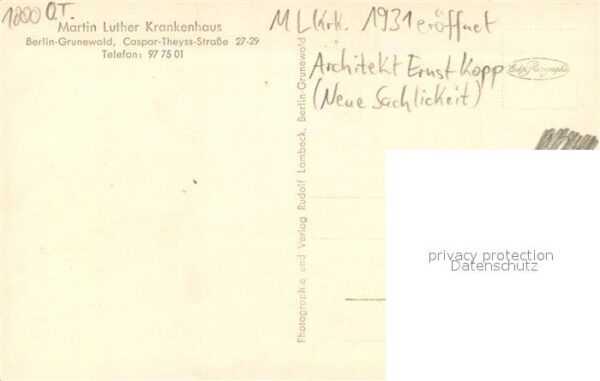 1000 O.T.
Martin Luther Krankenhaus
Berlin-Grunewald, Caspar-Theyss-Straße 27-29
Telefon: 97 75 01
M L Krk. 1931 eröffnet
Architekt Ernst Kopp
(Neue Sachlickeit)
Echte Photographie
Photographie und Verlag Rudolf Lambeck, Berlin-Grunewald
privacy protection
Datenschutz